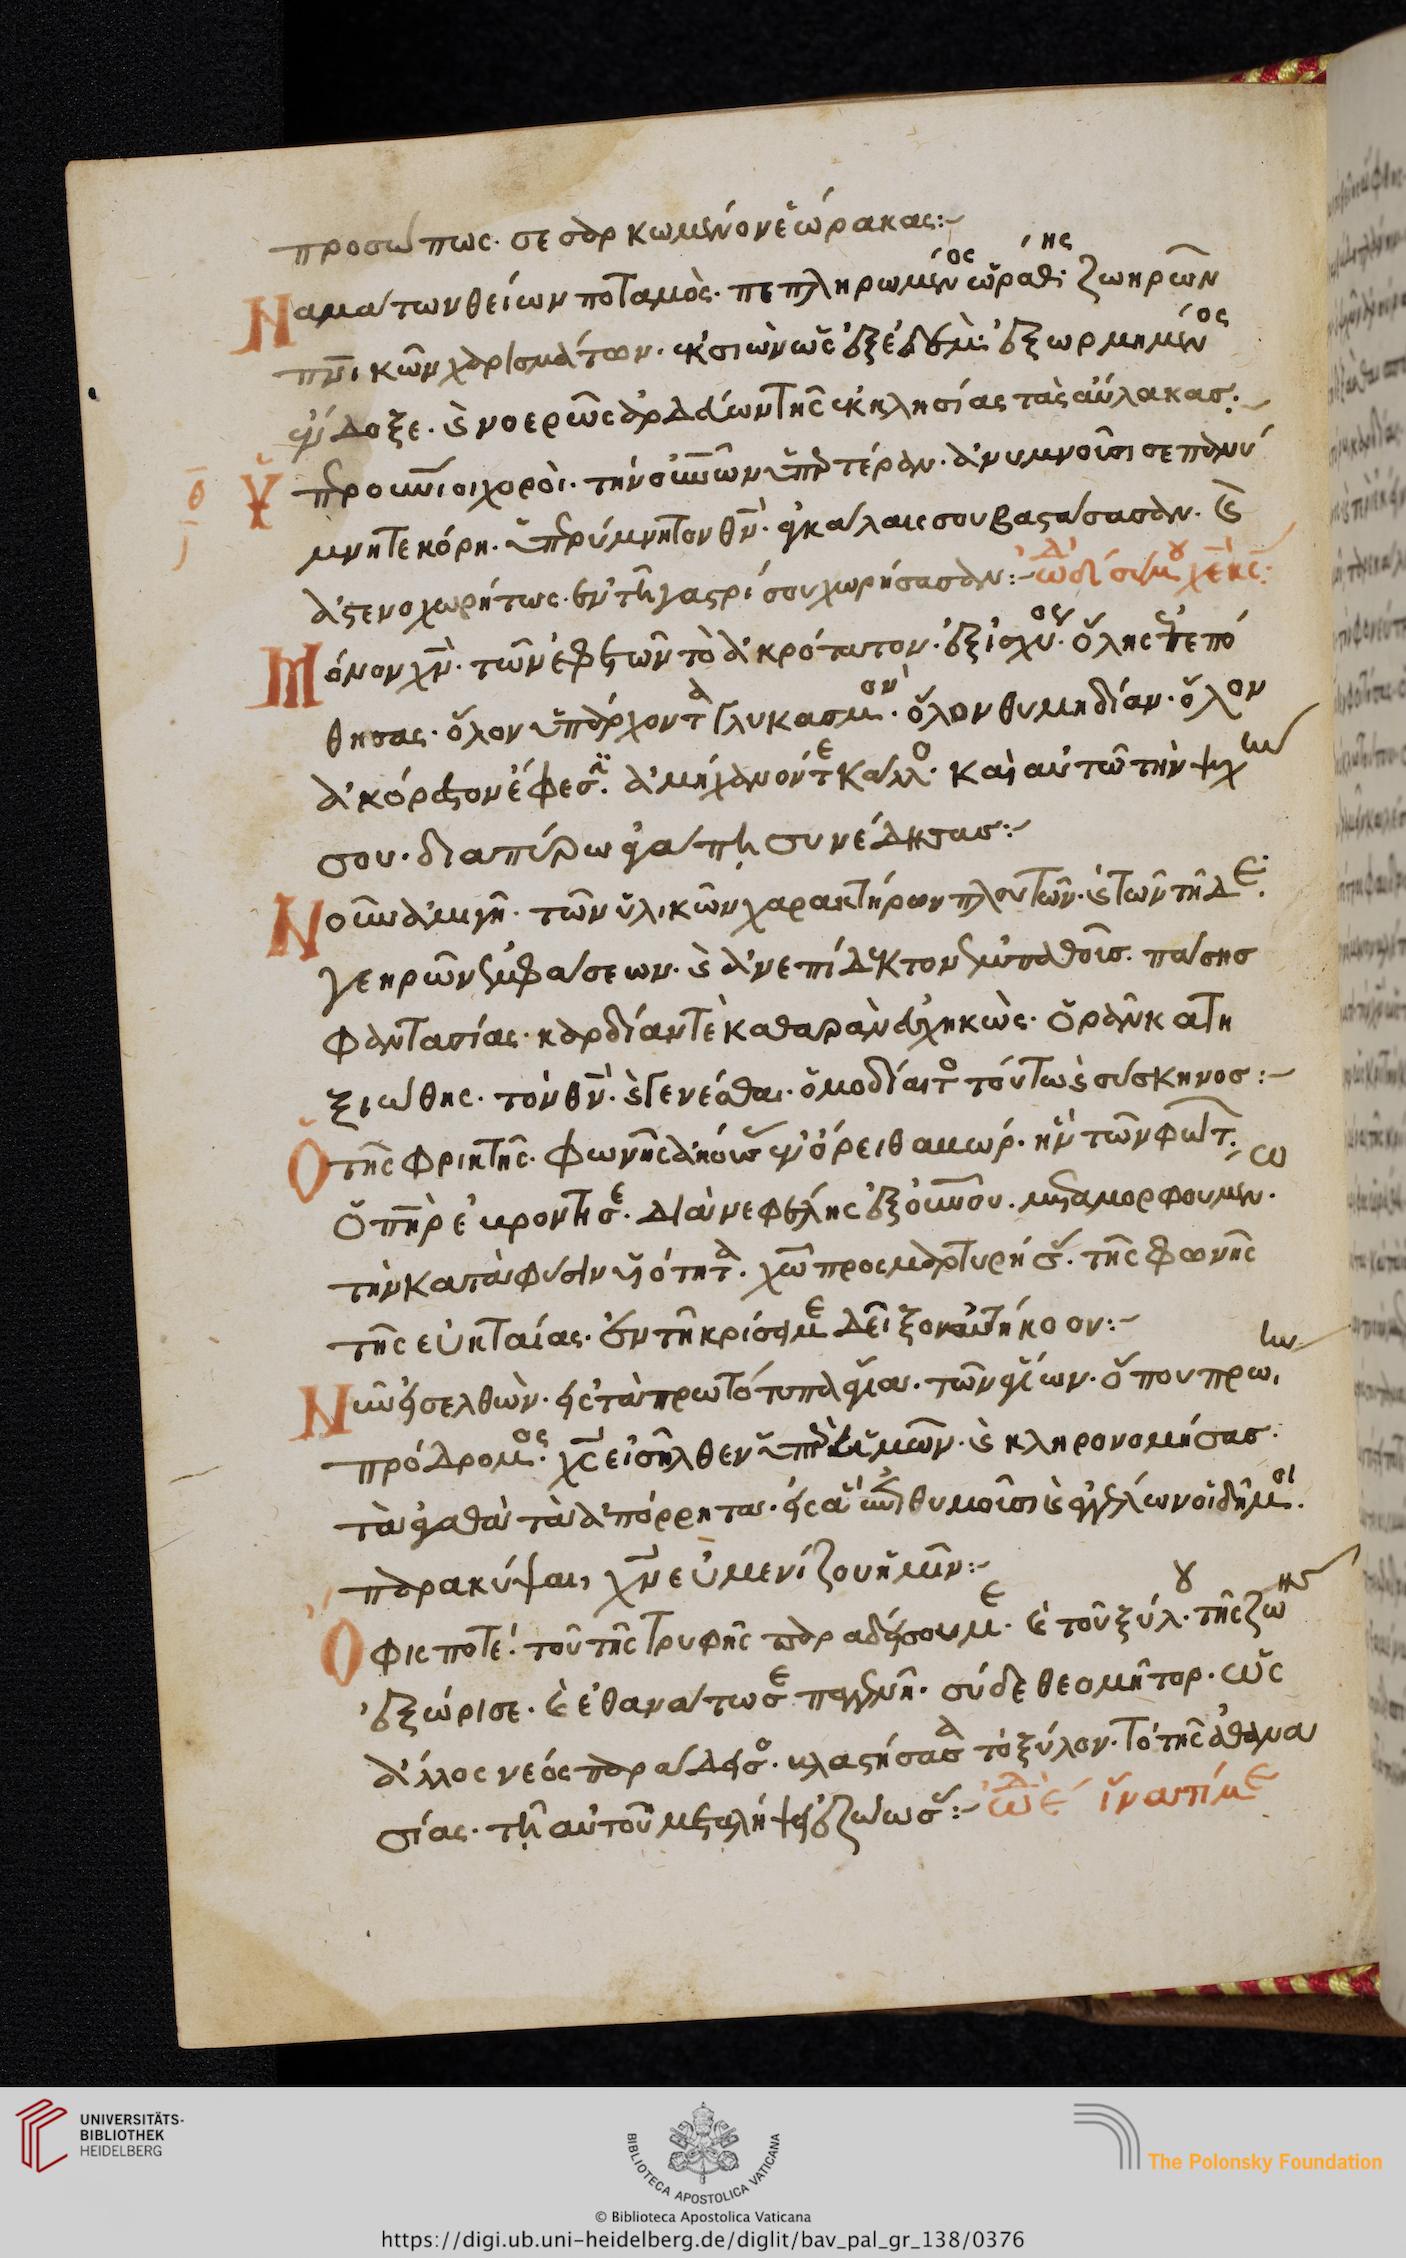 προσώπως· σε σαρκωμένον ἑώρακας:~
Ναμάτων θείων ποταμὸς· πεπληρωμένος ὡράθης· ζωηρῶν
πνικῶν χαρισμάτων· ἐκ σιὼν ὡς ἐξ ἐδὲμ ἐξωρμημένος
ἔνδοξε· καὶ νοερῶς ἀρδεύων τῆς ἐκκλησίας τὰς αὔλακας:~
θ Ὑπερουράνιοι χοροὶ· τὴν οὐρανῶν ὑπερτέραν· ἀνυμνοῦσί σε πανύ
μνητε κόρη· ὑπερύμνητον θν· ἀγκάλαις σου βαστάσασαν· καὶ
ἀστενοχωρήτως· ἐν τῇ γαστρί σου χωρήσασαν:~ ᾠδ δ σύ μου χε κε
Μόνον χν· τῶν ἐφετῶν τὸ ἀκρότατον· ἐξ ἰσχύος· ὅλης ἐπεπό
θησας· ὅλον ὑπάρχοντα γλυκασμὸν· ὅλον θυμηδίαν· ὅλον
ἀκόρεστον ἔφεσιν· ἀμήχανόν τε κάλλος· καὶ αὐτῷ τὴν ψυχὴν
σου· διαπύρῳ ἀγάπῃ συνέδησας:~
Νοῦν ἀμιγῆ· τῶν ὑλικῶν χαρακτήρων πλουτῶν· καὶ τῶν τῇδε
γεηρῶν ἐμφάσεων· καὶ ἀνεπίδεκτον ἐμπαθοῦς· πάσης
φαντασίας· καρδίαν τὲ καθαρὰν ἐσχηκὼς· ὁρᾶν κατη
ξιώθης· τὸν θν· καὶ γενέσθαι· ὁμοδίαιτος τούτω καὶ σύσκηνος:~
Ὁ τῆς φρικτῆς· φωνῆς ἀκούσας ἐν ὄρει θαμώρ· ἣν τῶν φώτων
ὁ πηρ ἐκροντησε· διὰ νεφέλης ἐξ οὐνου· μεταμορφουμένω
τὴν κατὰ φύσιν υἱότητα· χῶ προσμαρτυρήσας· τῆς φωνῆς
τῆς εὐκταίας· ἐν τῇ κρίσει με δεῖξον αὐτήκοον:~
Νῦν εἰσελθὼν· εἰς τὰ πρωτότυπα ἅγια· τῶν ἁγίων· ὅπου πρὼην
πρόδρομος· χς εἰσῆλθεν ὑπὲρ ἡμῶν· καὶ κληρονομήσας·
τὰ ἀγαθὰ τὰ ἀπόρρητα· εἰς ἃ ἐπιθυμοῦσι καὶ ἀγγέλων οἱ δῆμοι·
παρακύψαι, χν εὐμενίζου ἡμῖν:~
Ὄφις ποτέ· τοῦ τῆς τρυφῆς παραδείσου με· καὶ τοῦ ξύλου· τῆς ζωῆς
ἐξώρισε· καὶ ἐθανάτωσε παγγενῆ· σύ δε θεομῆτορ· ὡς
ἄλλος νέος παράδεισος· κλαστήσασα τὸ ξύλον· τὸ τῆς ἀθανα
σίας· τῇ αὐτοῦ μεταλήψει ἐζώωσας:~ ᾠδ ε ἵνα τί με
UNIVERSITÄTS-
BIBLIOTHEK
HEIDELBERG
BIBLIOTECA APOSTOLICA VATICANA
The Polonsky Foundation
© Biblioteca Apostolica Vaticana
https://digi.ub.uni-heidelberg.de/diglit/bav_pal_gr_138/0376